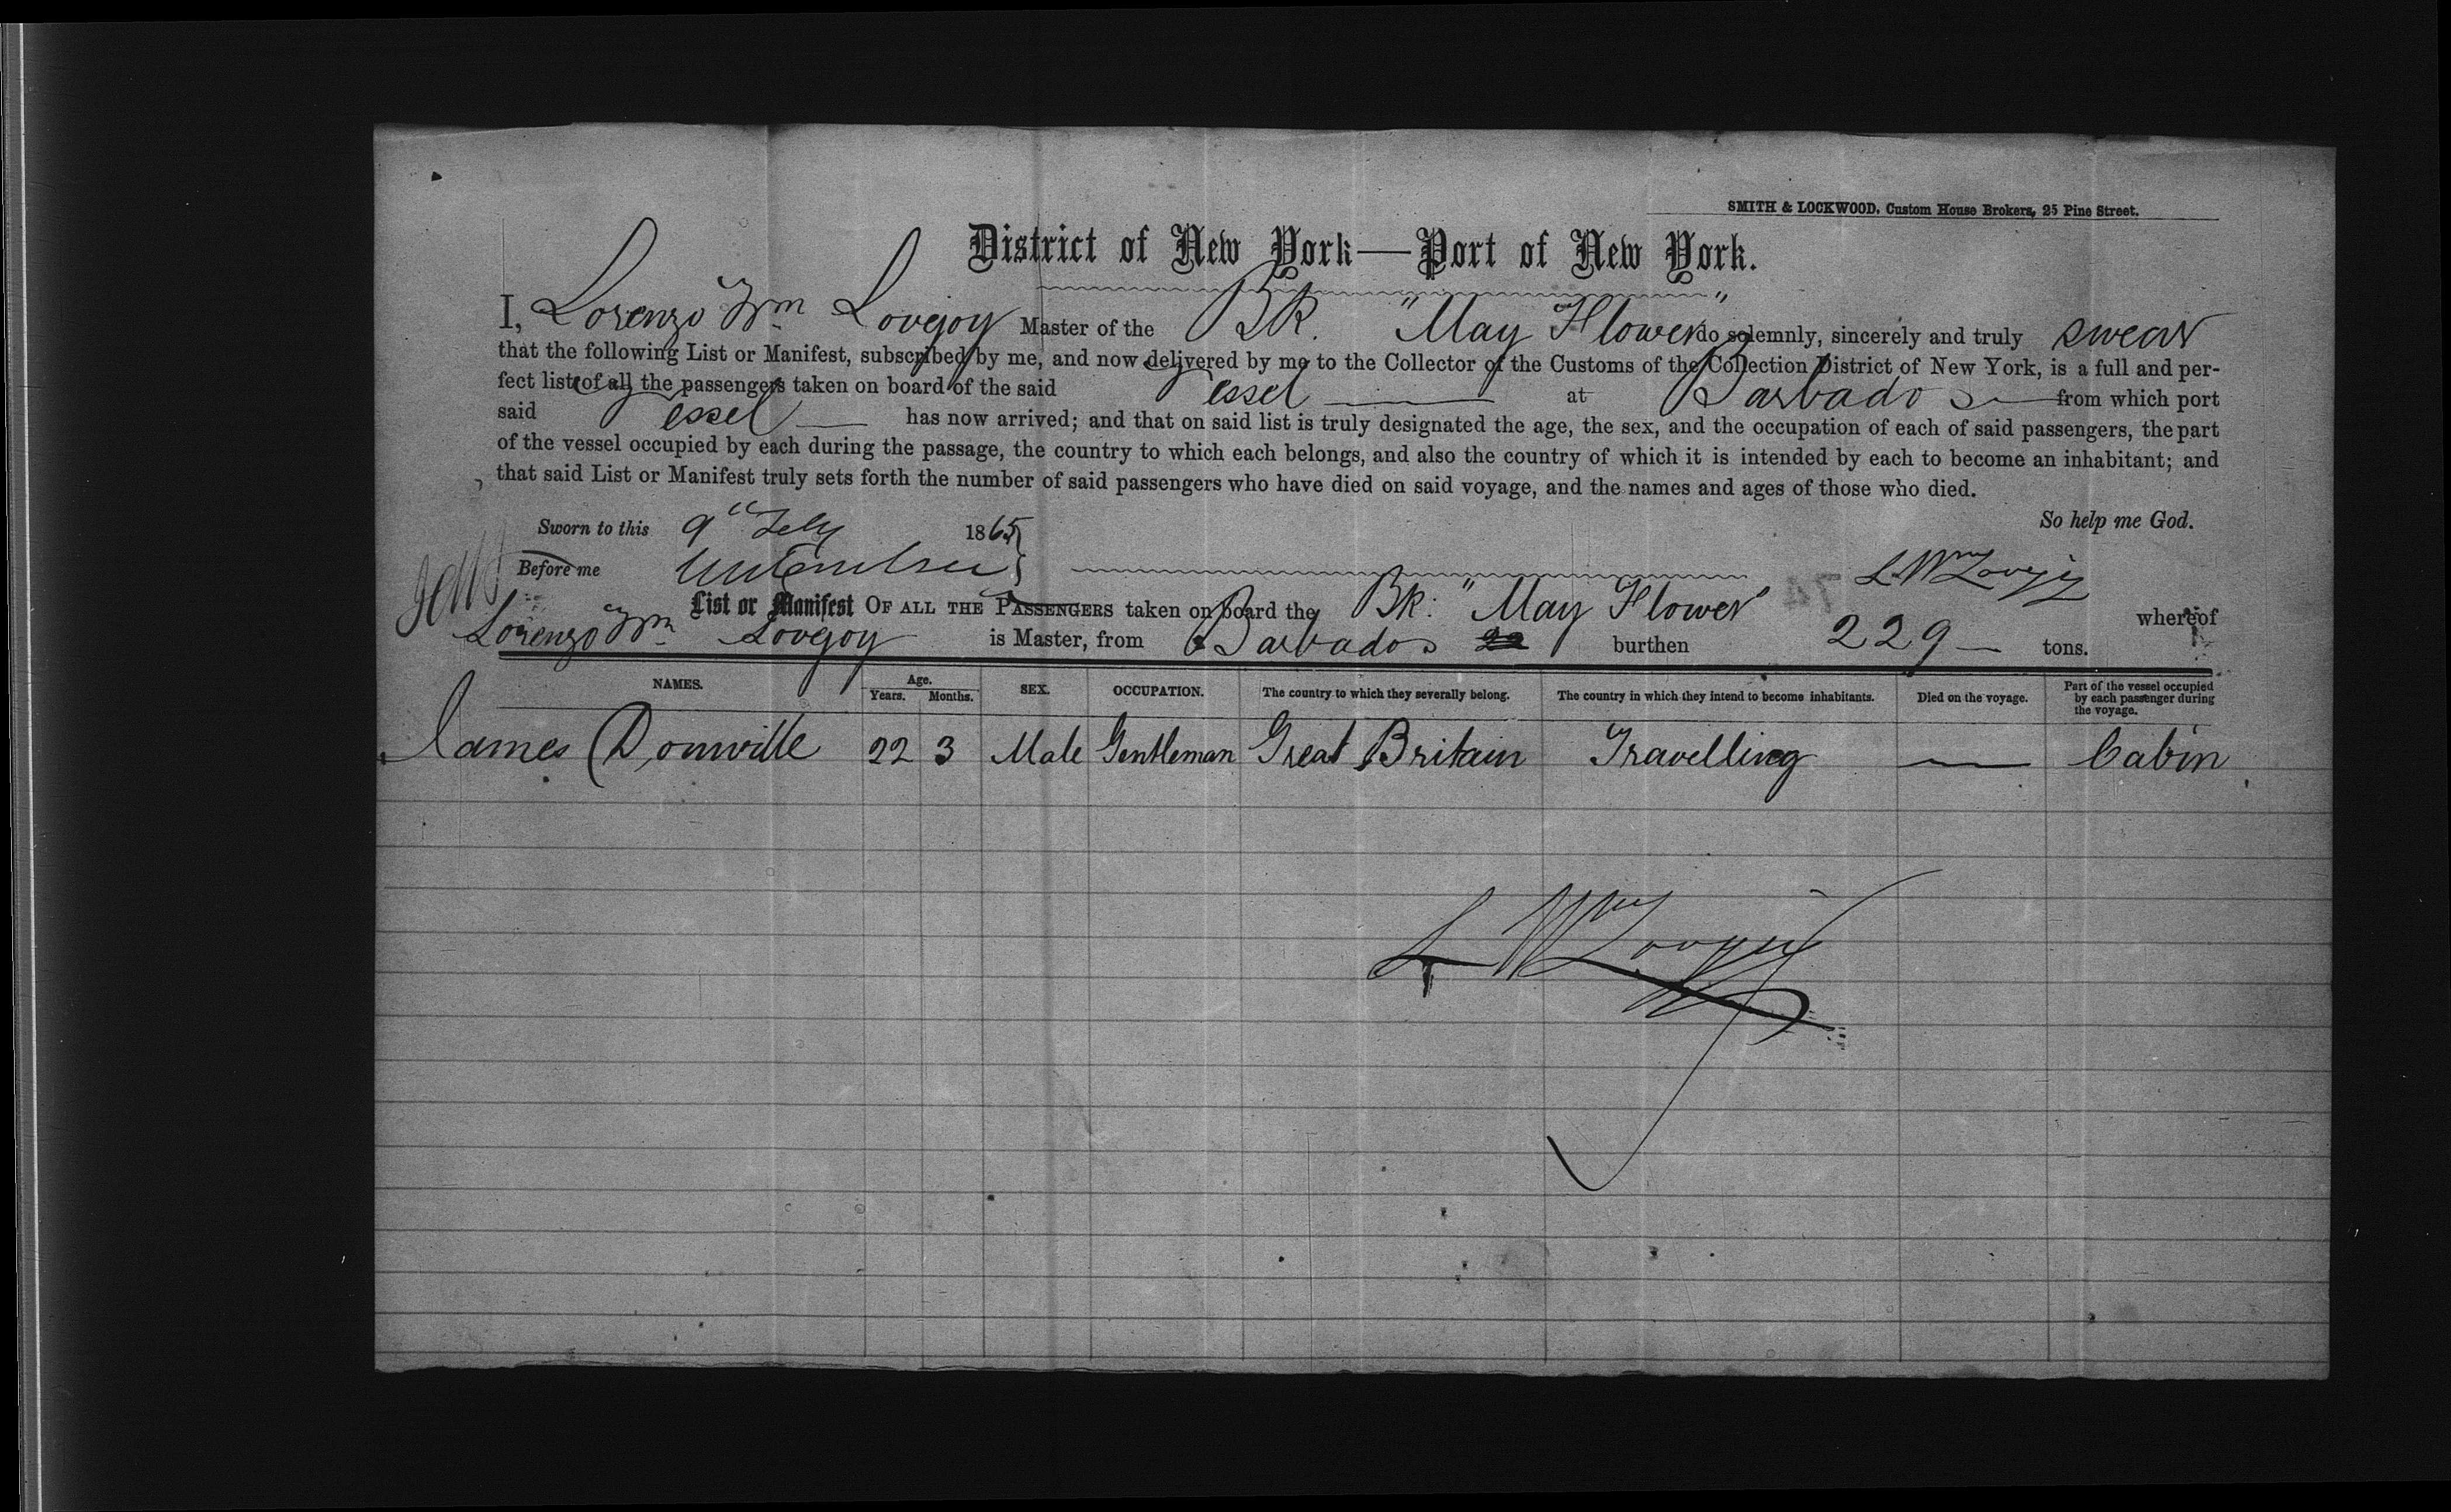 SMITH & LOCKWOOD, Custom House Brokers, 25 Pine Street.
District of New York—Port of New York.
I, Lorenzo Wm Lovejoy Master of the Bk. "May Flower" do solemnly, sincerely and truly swear
that the following List or Manifest, subscribed by me, and now delivered by me to the Collector of the Customs of the Collection District of New York, is a full and per-
fect list of all the passengers taken on board of the said Vessel — at Barbados — from which port
said Vessel — has now arrived; and that on said list is truly designated the age, the sex, and the occupation of each of said passengers, the part
of the vessel occupied by each during the passage, the country to which each belongs, and also the country of which it is intended by each to become an inhabitant; and
that said List or Manifest truly sets forth the number of said passengers who have died on said voyage, and the names and ages of those who died.
Sworn to this 9th Feby 1865 So help me God.
Before me L Wm Lovejoy
List or Manifest OF ALL THE PASSENGERS taken on board the Bk: "May Flower" whereof
Lorenzo Wm Lovejoy is Master, from Barbados burthen 229 — tons.
NAMES. Age. Years. Months. SEX. OCCUPATION. The country to which they severally belong. The country in which they intend to become inhabitants. Died on the voyage. Part of the vessel occupied by each passenger during the voyage.
James Domville 22 3 Male Gentleman Great Britain Travelling — Cabin
L Wm Lovejoy